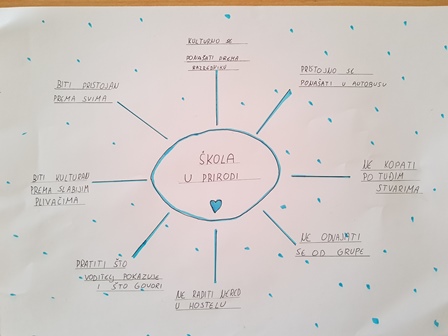 KULTURNO SE
PONAŠATI PREMA
RAZREDNIKU
PRISTOJNO SE
PONAŠATI U AUTOBUSU
BITI PRISTOJAN
PREMA SVIMA
ŠKOLA
U PRIRODI
NE KOPATI
PO TUĐIM
STVARIMA
BITI KULTURAN
PREMA SLABIJIM
PLIVAČIMA
NE ODVAJATI
SE OD GRUPE
PRATITI ŠTO
VODITELJ POKAZUJE
I ŠTO GOVORI
NE RADITI NERED
U HOSTELU